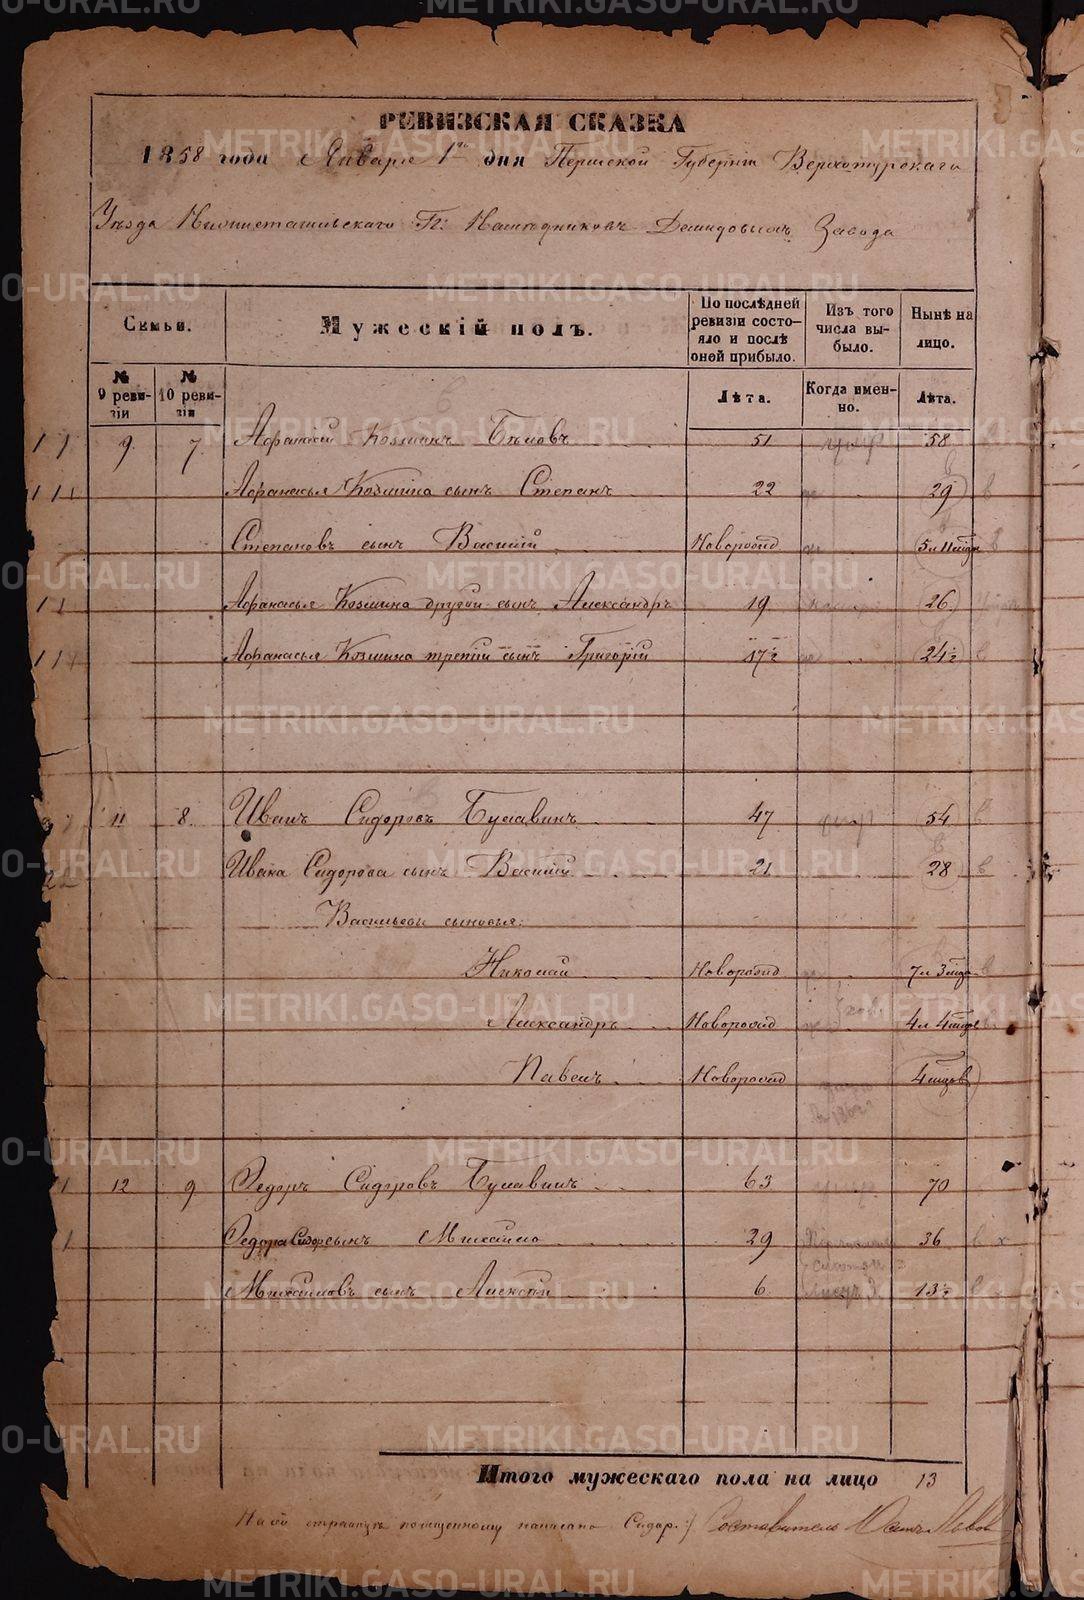 РЕВИЗСКАЯ СКАЗКА
1858 года Января 1го дня Пермской Губерніи Верхотурскаго
Уѣзда Нижнетагильскаго Гг: Наслѣдниковъ Демидовыхъ Завода
Семьи.
Мужескій полъ.
По послѣдней ревизіи состояло и послѣ оней прибыло.
Изъ того числа выбыло.
Нынѣ на лицо.
№ 9 ревизіи
№ 10 ревизіи
Лѣта.
Когда именно.
Лѣта.
9 7 Афанасій Козминъ Бѣловъ 51 58
Афанасья Козмина сынъ Степанъ 22 29
Степановъ сынъ Василій Новорожд 5 л 11 мцовъ
Афанасья Козмина другой сынъ Александръ 19 26
Афанасья Козмина третій сынъ Григорій 17½ 24½
11 8 Иванъ Сидоровъ Булавинъ 47 54
Ивана Сидорова сынъ Василій 21 28
Васильевы сыновья:
Николай Новорожд 7 л 3 мцовъ
Александръ Новорожд 4 л 4 мцовъ
Павелъ Новорожд 4 мцовъ
12 9 Федоръ Сидоровъ Булавинъ 63 70
Федора Сидор сынъ Михайло 29 36
Михайловъ сынъ Алексѣй 6 13½
Итого мужескаго пола на лицо 13
На сей страницѣ написано Сидор:/ Составитель
METRIKI.GASO-URAL.RU